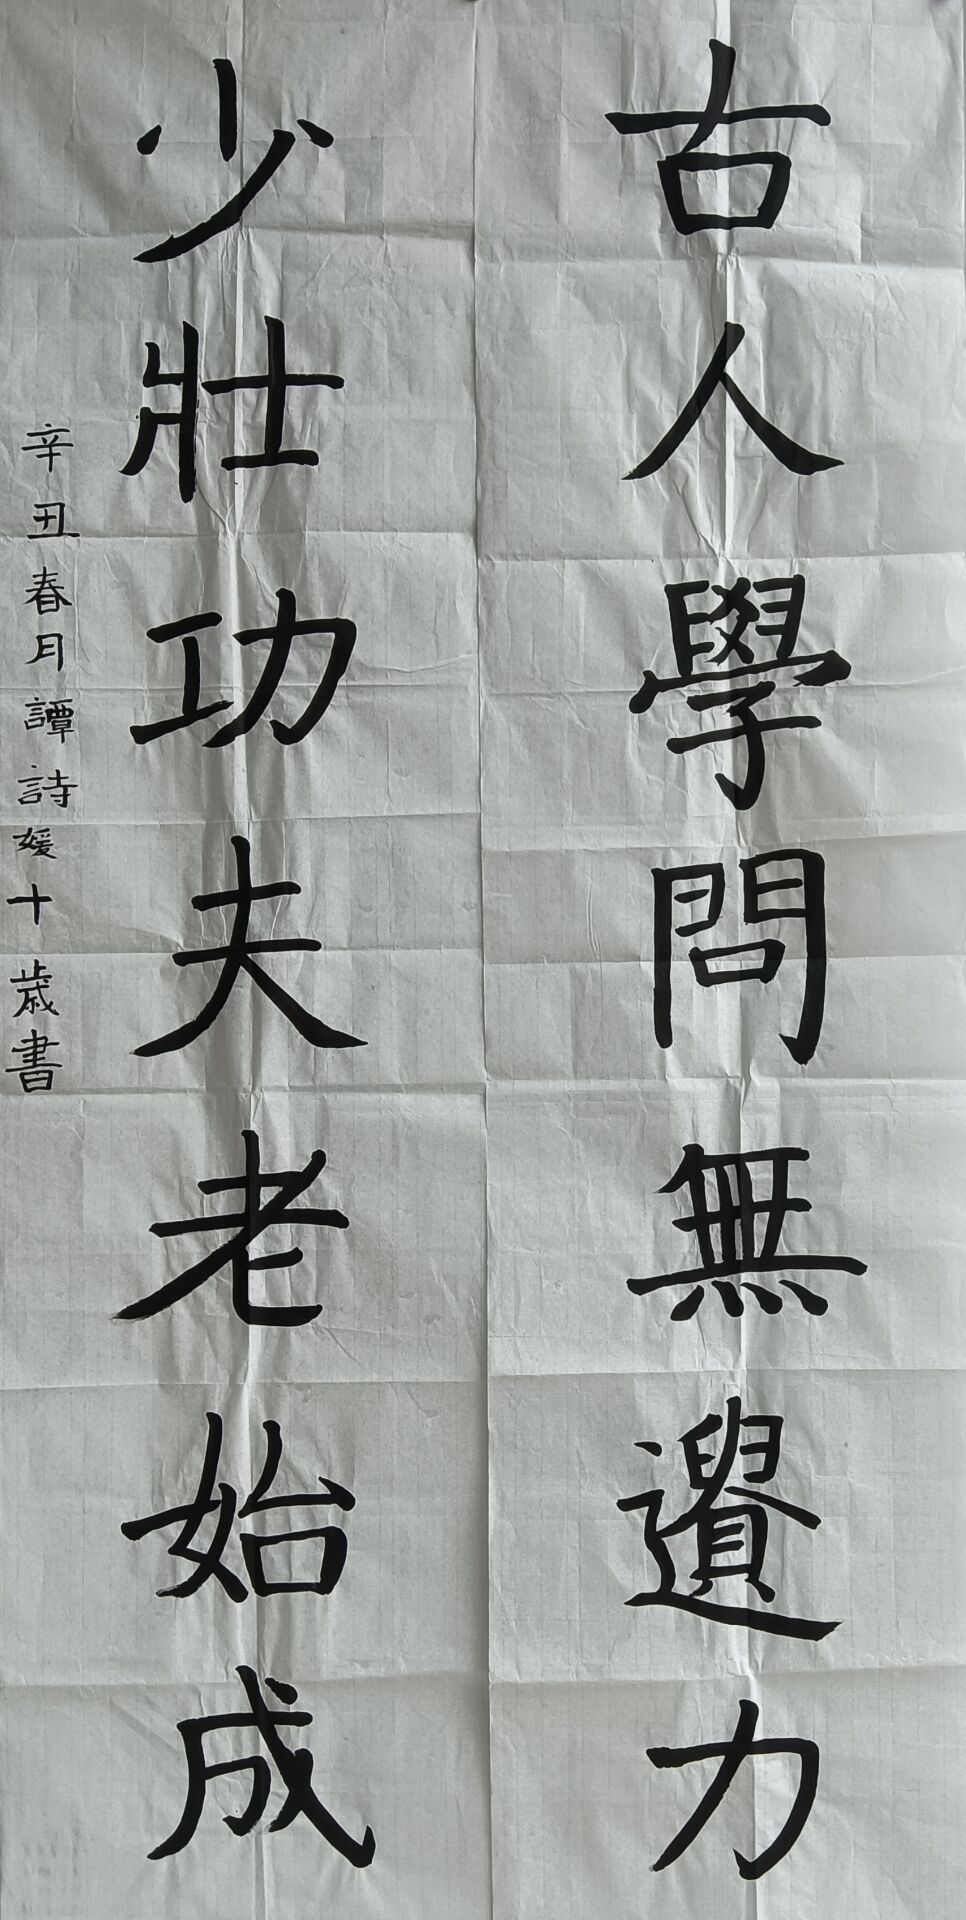 古人學問無遺力
少壯功夫老始成
辛丑春月譚詩媛十歲書